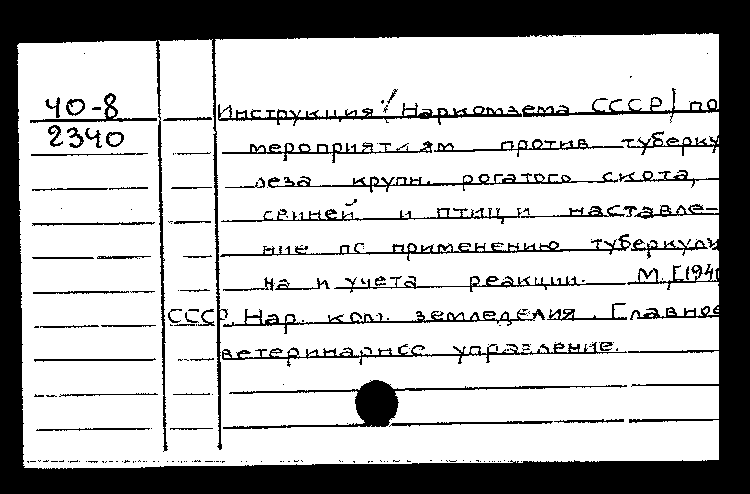 40-8
Инструкция /Наркомзема СССР/ по
2340
мероприятиям против туберку
леза крупн. рогатого скота,
свиней и птиц и наставле-
ние по применению туберкули
на и учета реакции. М,[1940
СССР. Нар. ком. земледелия. Главное
ветеринарное управление.